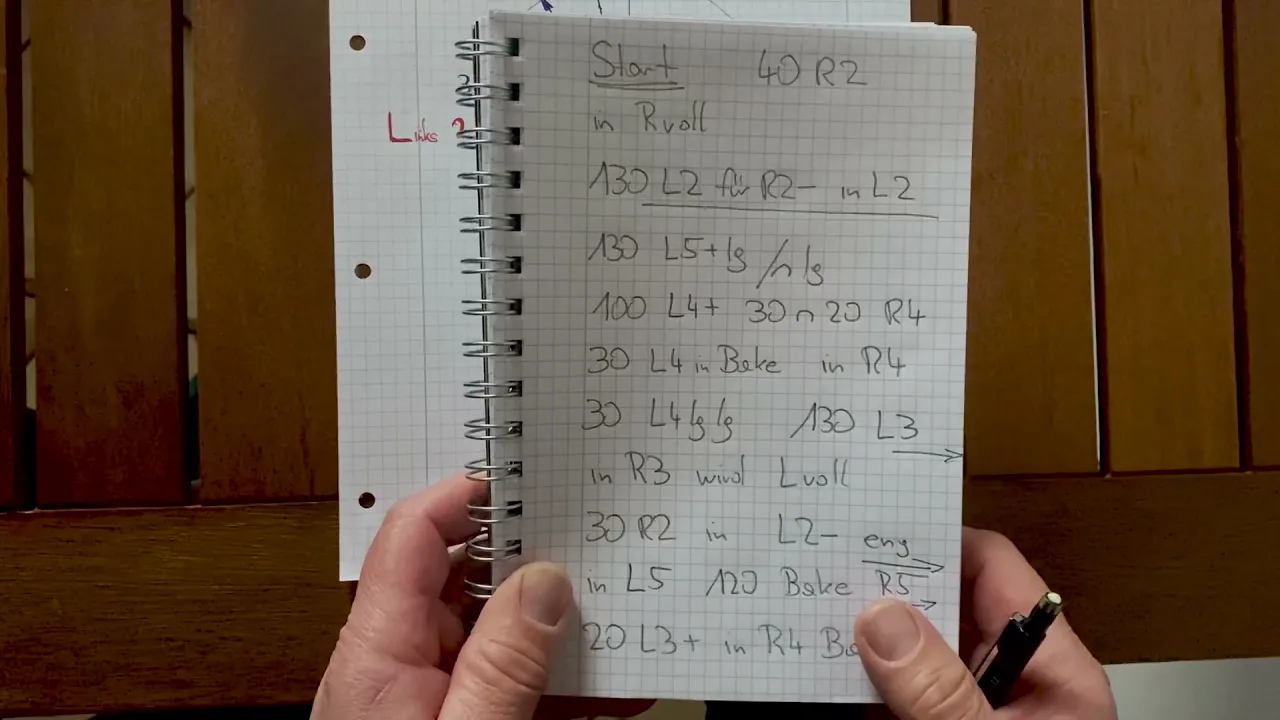 Start 40 R2
in Rvoll
130 L2 für R2- in L2
130 L5+ lg /n lg
100 L4+ 30 n 20 R4
30 L4 in Bake in R4
30 L4 lg lg 130 L3 →
in R3 wird Lvoll
30 R2 in L2- eng →
in L5 120 Bake R5 →
20 L3+ in R4
Links